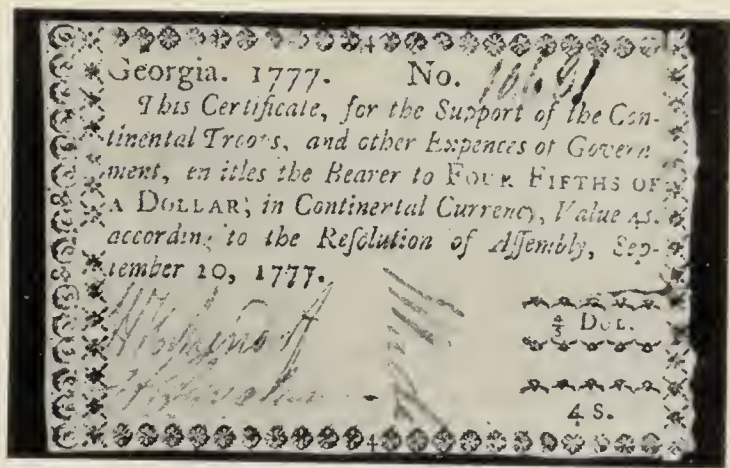 4
Georgia. 1777. No.
This Certificate, for the Support of the Con-
tinental Troops, and other Expences of Govern
ment, en itles the Bearer to FOUR FIFTHS OF
A DOLLAR, in Continental Currency, Value 4s.
according to the Resolution of Assembly, Sep-
tember 10, 1777.
4/5 DOL.
4 S.
4